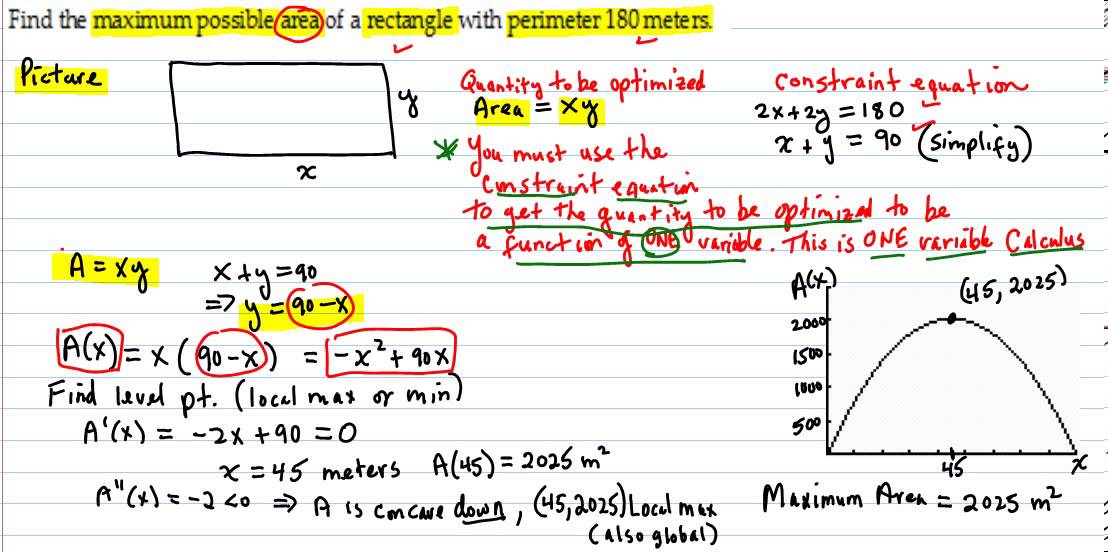 Find the maximum possible area of a rectangle with perimeter 180 meters.
Picture
y
x
Quantity to be optimized
Area = xy
constraint equation
2x+2y = 180
x + y = 90 (simplify)
* You must use the
constraint equation
to get the quantity to be optimized to be
a function of ONE variable. This is ONE variable Calculus
A = xy
x + y = 90
⇒ y = 90 - x
A(x) = x (90-x) = -x² + 90x
Find level pt. (local max or min)
A'(x) = -2x + 90 = 0
x = 45 meters A(45) = 2025 m²
A"(x) = -2 < 0 ⇒ A is concave down, (45,2025) Local max
(also global)
A(x)
(45, 2025)
2000
1500
1000
500
45
x
Maximum Area = 2025 m²